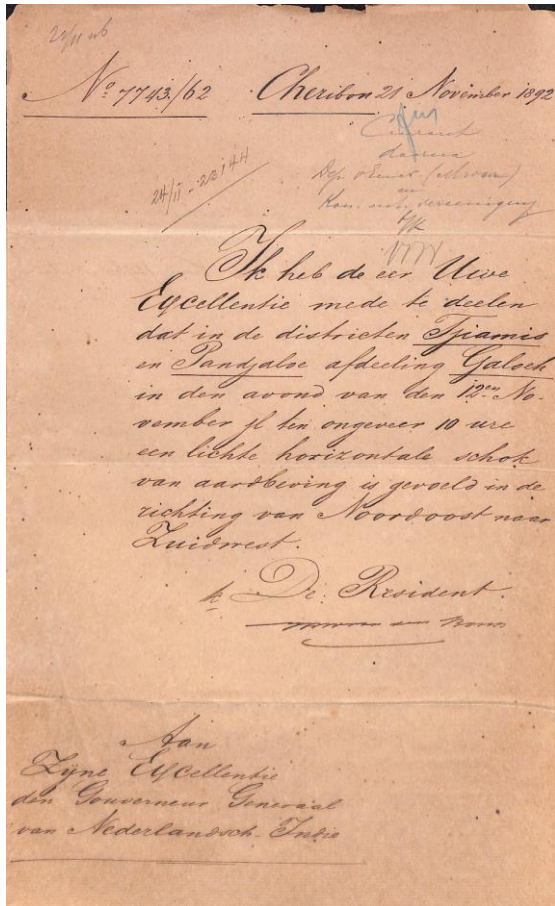 No 7743/62 Cheribon 21 November 1892
24/11 - 22144
Courant
daarna
Dep. v Eered. (Mroom)
en
Kon. nat. vereeniging
Ik heb de eer Uwe
Excellentie mede te deelen
dat in de districten Tjiamis
en Pandjaloe afdeeling Galoeh
in den avond van den 12en No-
vember jl ten ongeveer 10 ure
een lichte horizontale schok
van aardbeving is gevoeld in de
richting van Noordoost naar
Zuidwest.
De Resident
Aan
Zyne Excellentie
den Gouverneur Generaal
van Nederlandsch-Indie